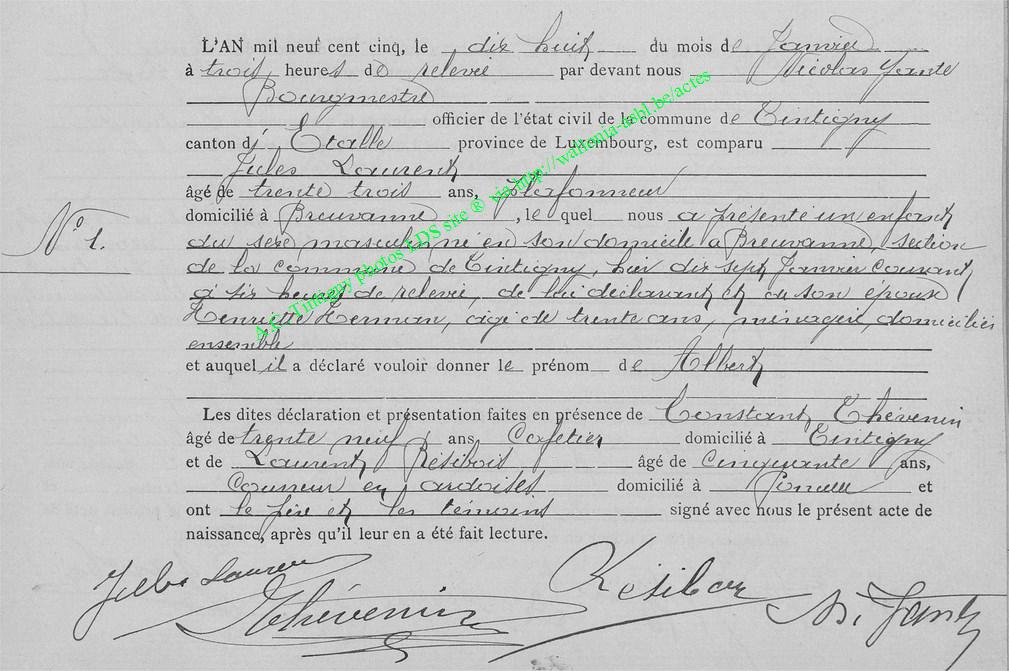 L'AN mil neuf cent cinq, le dix huit du mois de Janvier
à trois heures de relevée par devant nous Nicolas Jante
Bourgmestre
officier de l'état civil de la commune de Tintigny
canton d' Etalle province de Luxembourg, est comparu
Jules Laurent
âgé de trente trois ans, plafonneur
domicilié à Breuvanne, le quel nous a présenté un enfant
du sexe masculin né en son domicile à Breuvanne, section
de la commune de Tintigny, hier dix sept Janvier courant
à six heures de relevée, de lui déclarant et de son épouse
Henriette Herman, âgé de trente ans, ménagère, domiciliés
ensemble
et auquel il a déclaré vouloir donner le prénom de Albert
Les dites déclaration et présentation faites en présence de Constant Thévenin
âgé de trente neuf ans Cafetier domicilié à Tintigny
et de Laurent Résibois âgé de cinquante ans,
Couvreur en ardoises domicilié à et
ont le père et les témoins signé avec nous le présent acte de
naissance, après qu'il leur en a été fait lecture.
N° 1.
Jules Laurent
Thévenin
Résibois
N. Jante
A.C. Tintigny photos EDS site ® via http://wallonia-asbl.be/actes